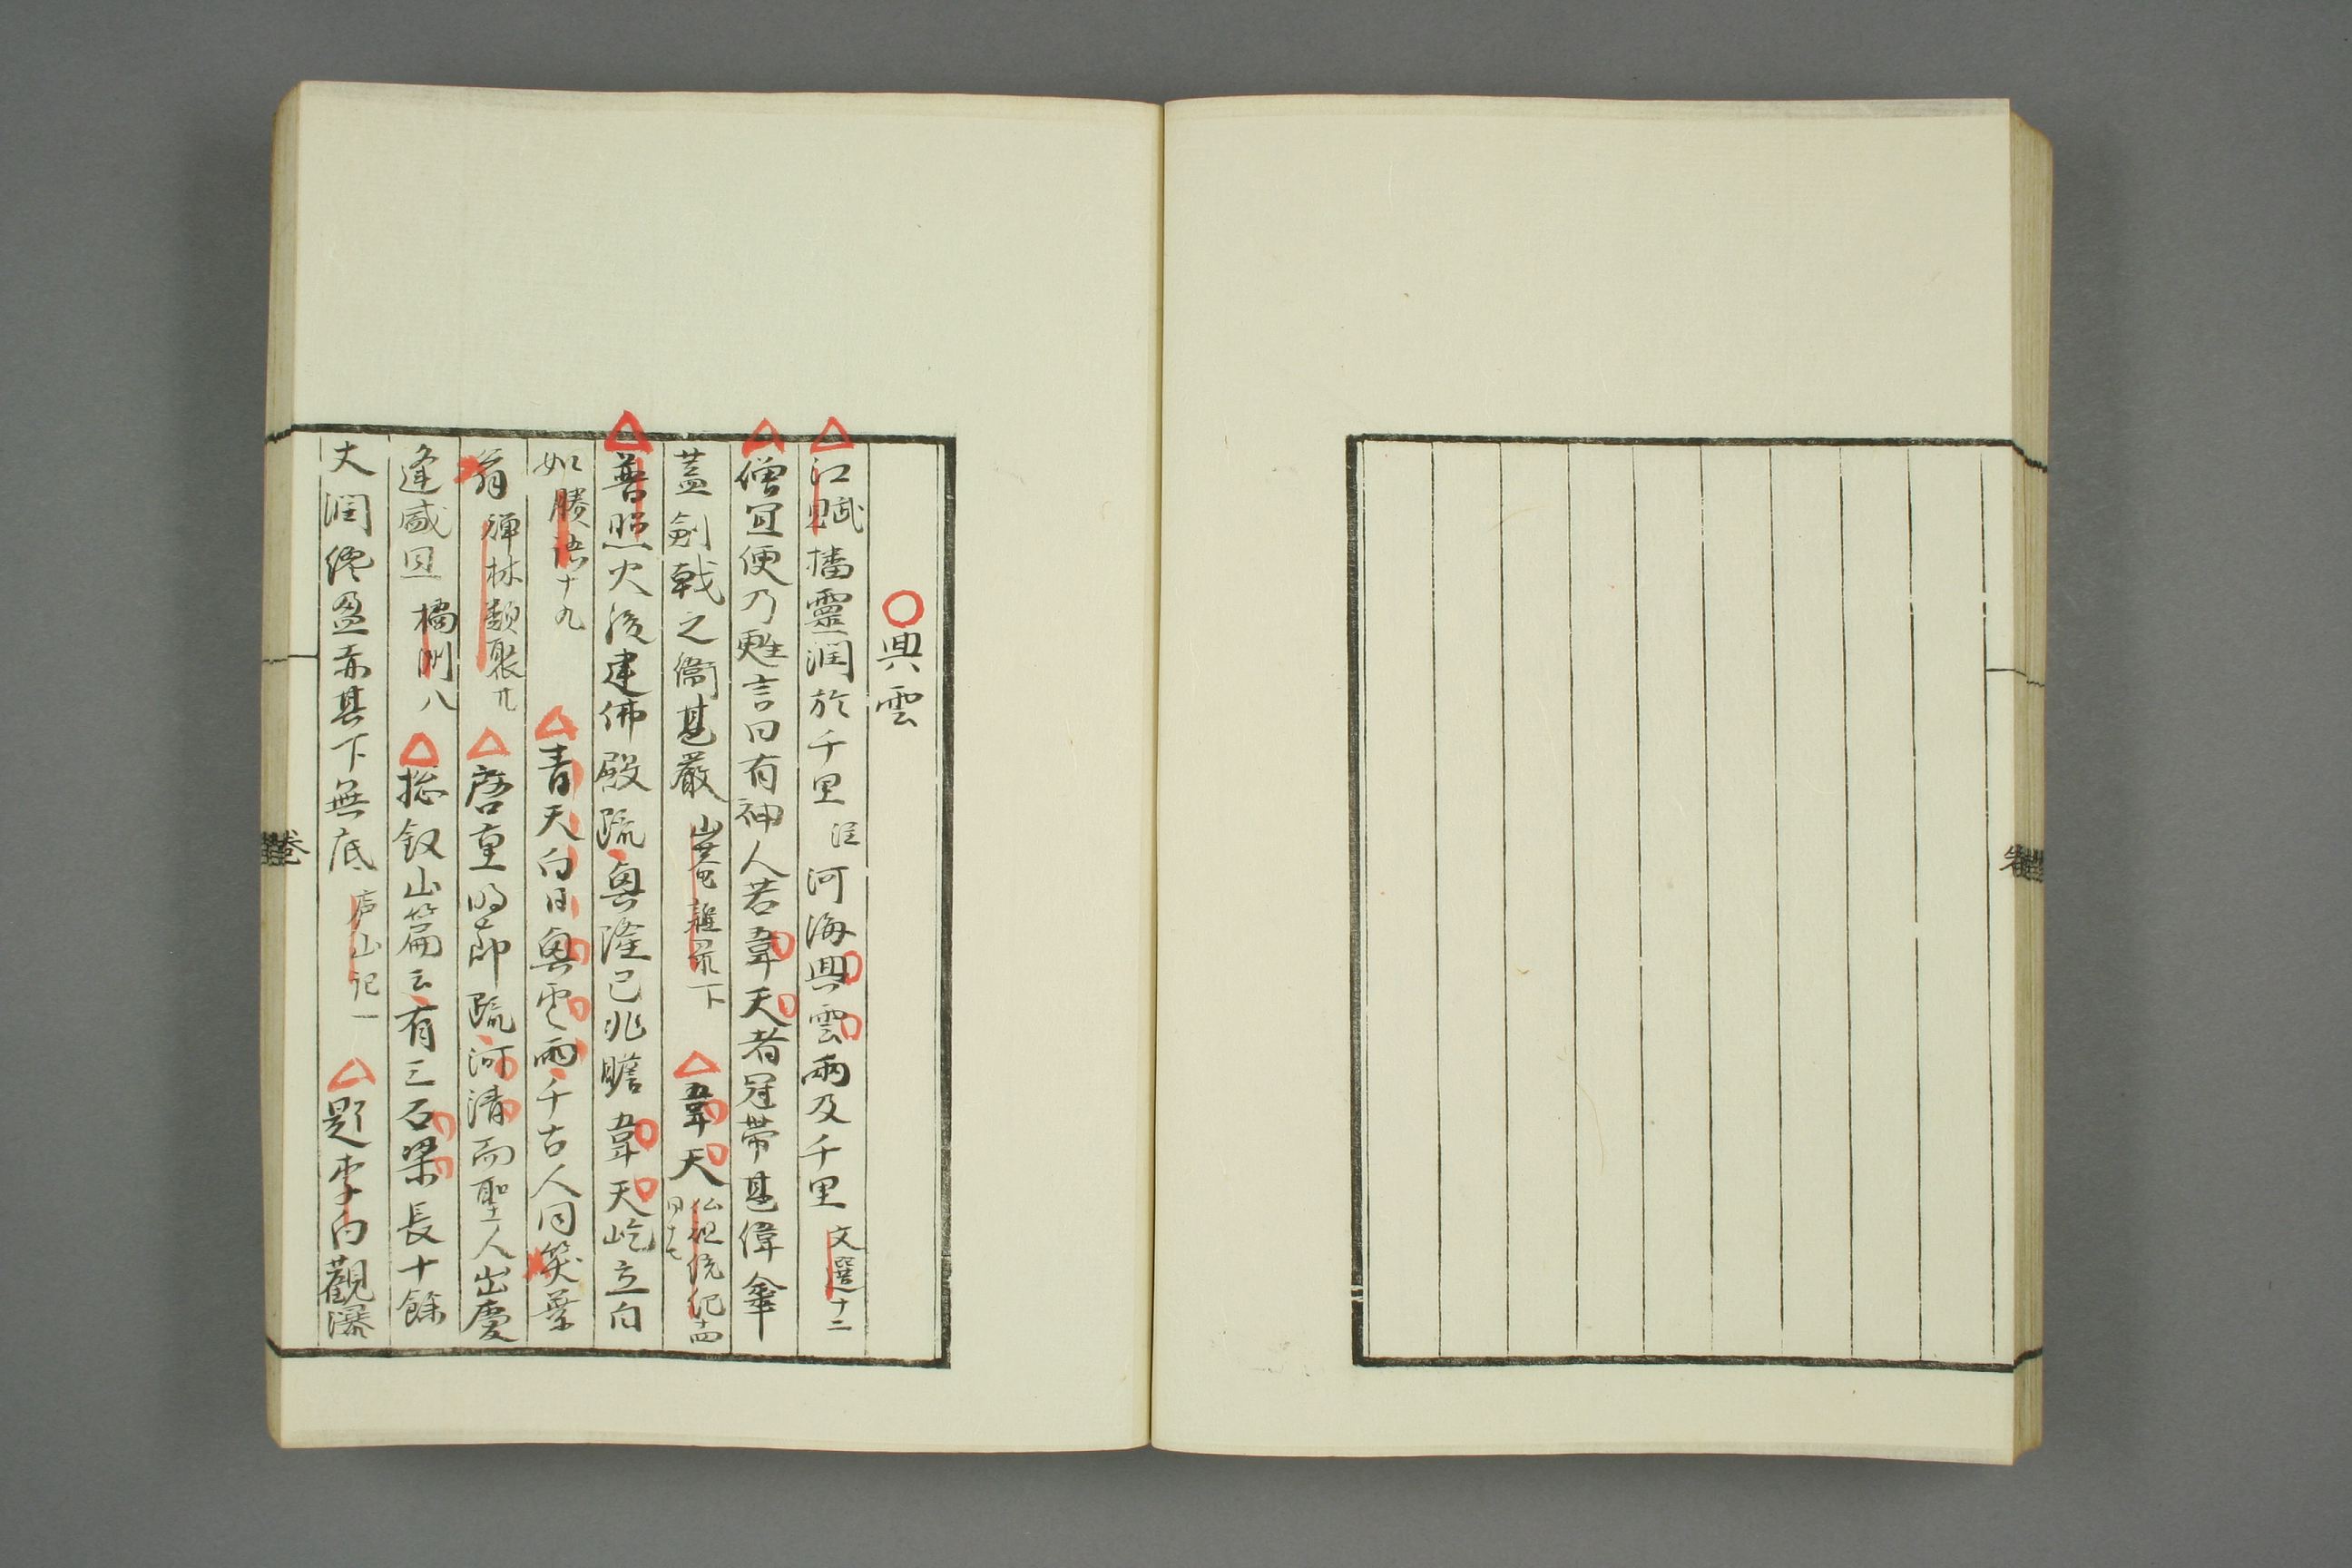 興雲
江賦播靈潤於千里 註 河海興雲雨及千里 文選十二
僧冝便乃甦言曰有神人若韋天者冠帶甚偉傘
蓋劍戟之衞甚嚴 山菴雜录下 韋天 仏祖統紀十四 同十七
普照火後建佛殿疏輿隆已兆瞻韋天屹立向
如勝語十九 青天白日輿雲雨千古人同笑葉
翁 禪林類聚廿 啓重明節疏河清而聖人出慶
逢盛旦 橘洲八 捴叙山篇云有三石梁長十餘
丈潤纔盈赤其下無底 庐山記一 題李白觀瀑